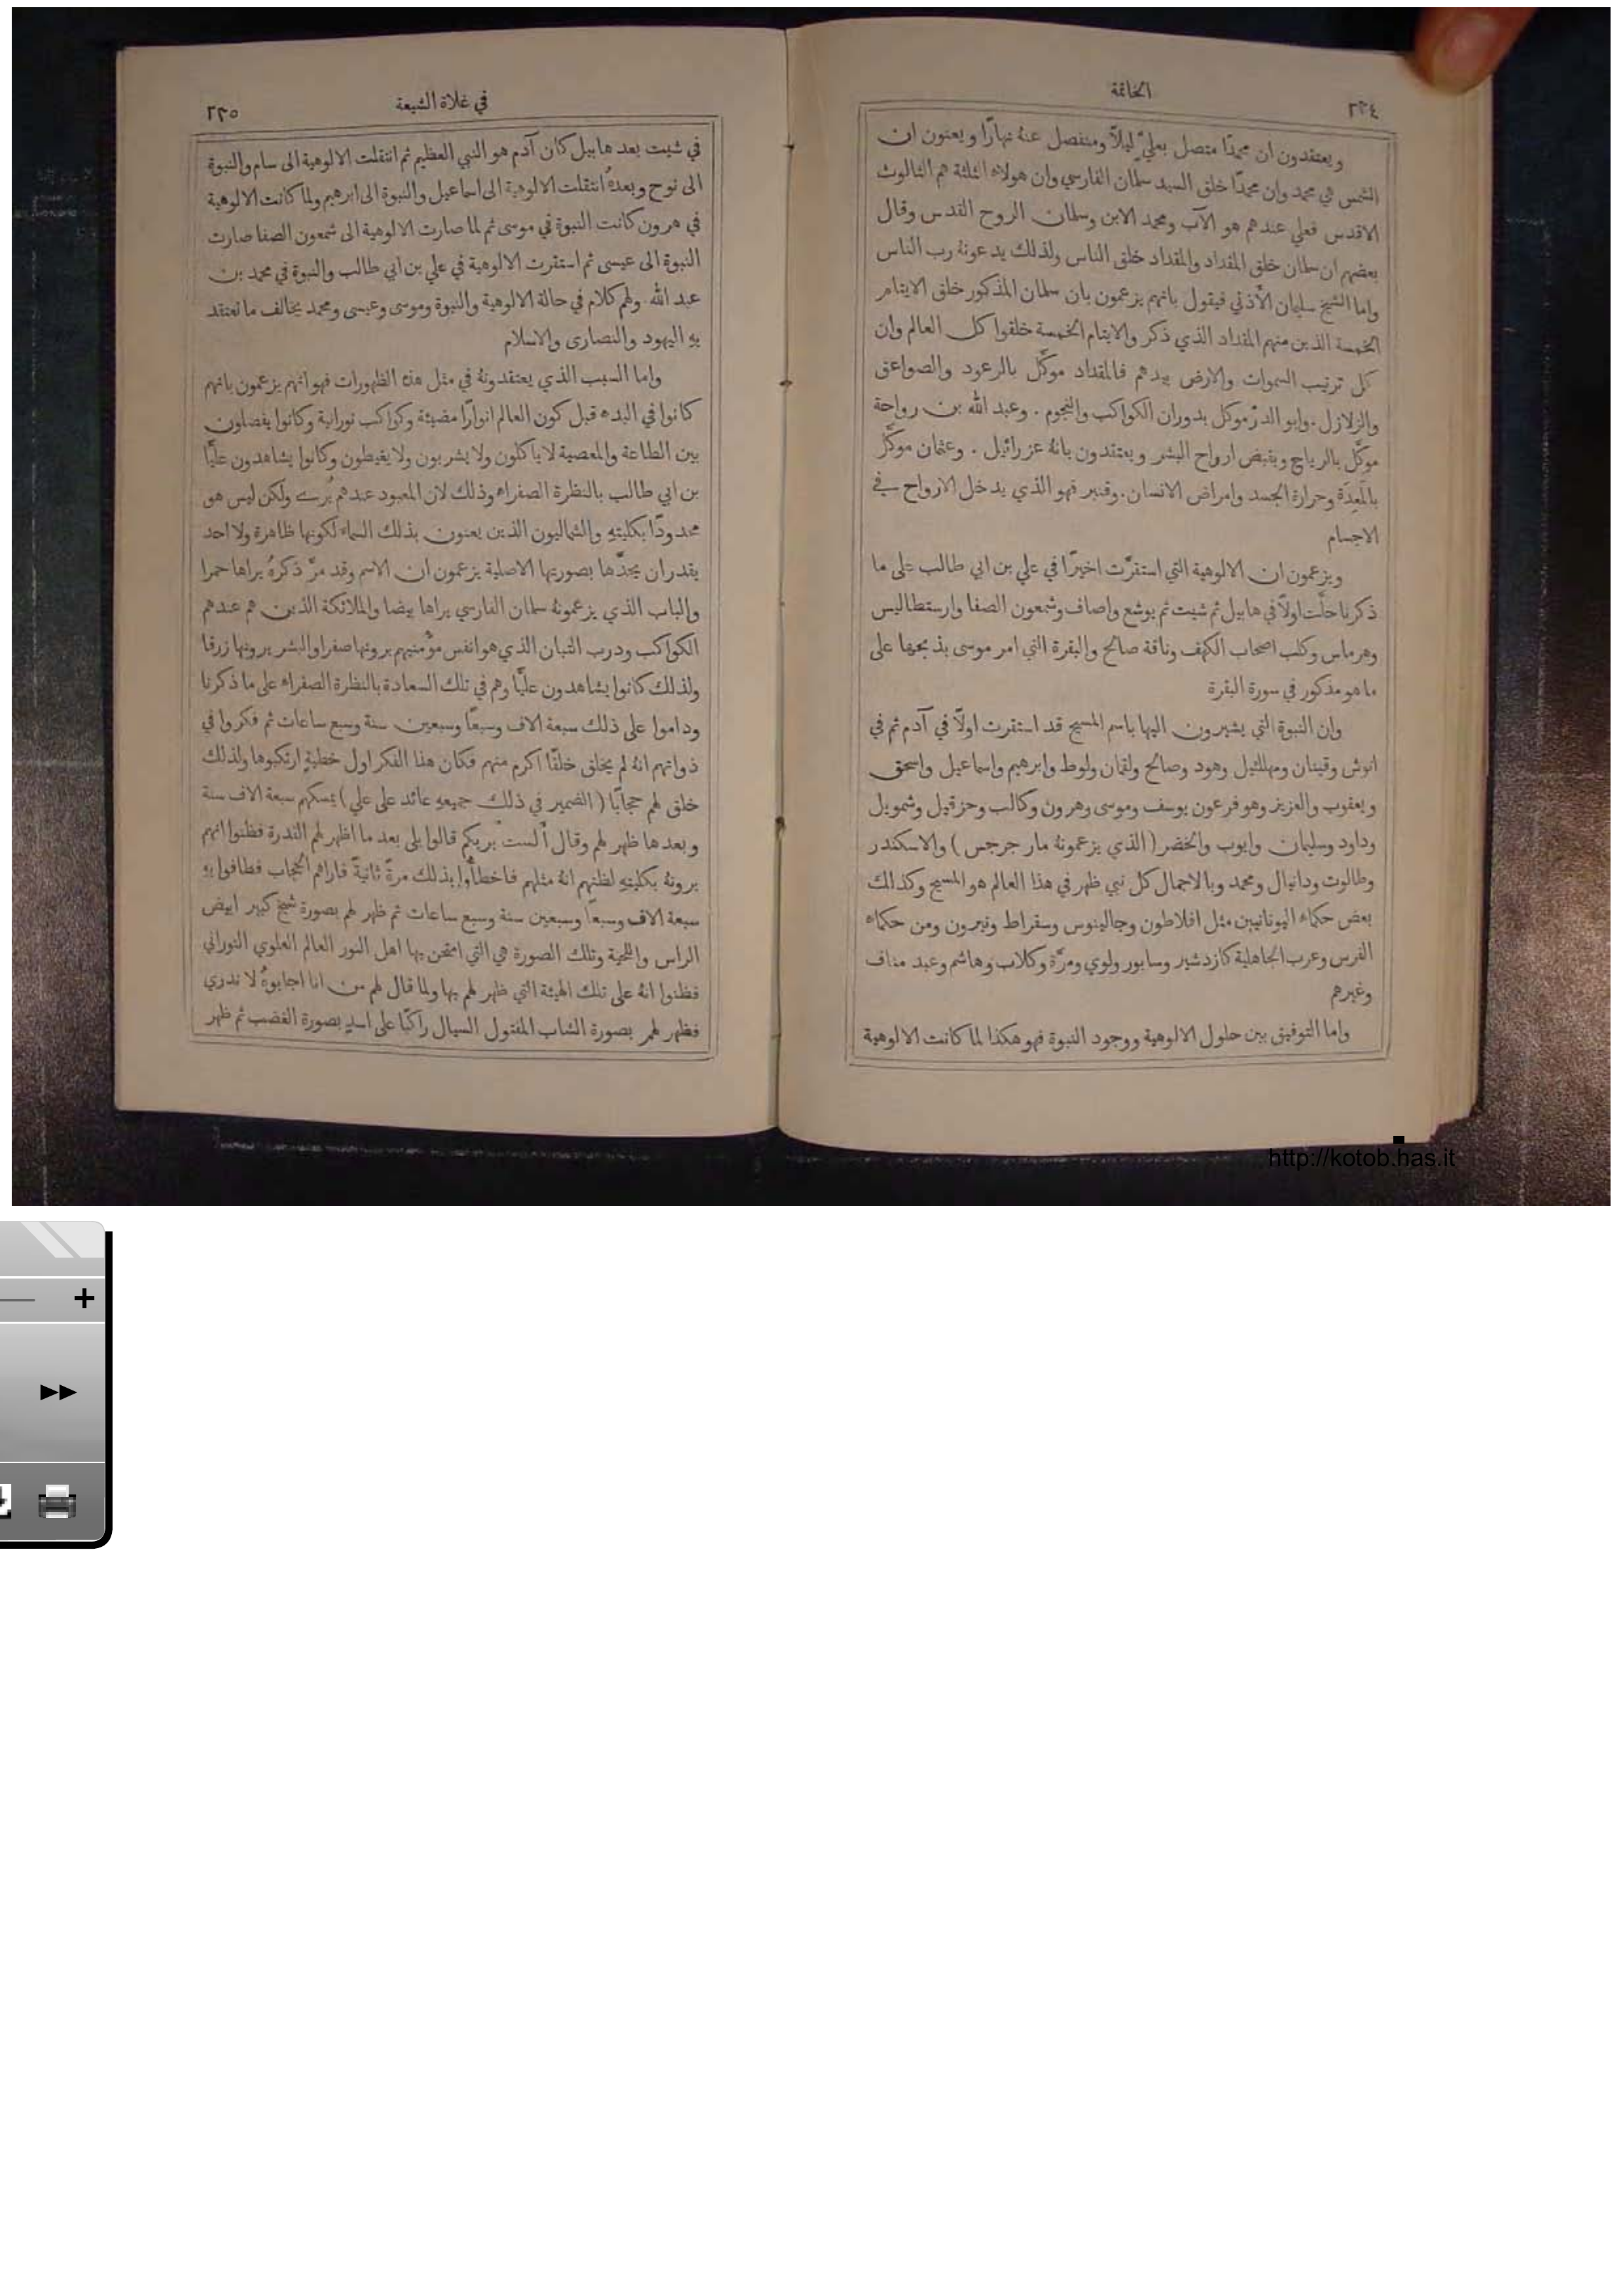 ٢٣٤
الخاتمة
ويعتقدون ان محمدًا متصل بعليّ ليلًا ومنفصل عنهُ نهارًا ويعنون ان
الشمس هي محمد وان محمدًا خلق السيد سلمان الفارسي وان هولاء الثلثة هم الثالوث
الاقدس فعلي عندهم هو الآب ومحمد الابن وسلمان الروح القدس وقال
بعضهم ان سلمان خلق المقداد والمقداد خلق الناس ولذلك يدعونهُ رب الناس
واما الشيخ سليمان الأذني فيقول بانهم يزعمون بان سلمان المذكور خلق الايتام
الخمسة الذين منهم المقداد الذي ذكر والايتام الخمسة خلقوا كل العالم وان
كل ترتيب السموات والارض بيدهم فالمقداد موكَّل بالرعود والصواعق
والزلازل. وابو الدرّ موكل بدوران الكواكب والنجوم. وعبد الله بن رواحة
موكَّل بالرياح وبقبض ارواح البشر ويعتقدون بانهُ عزرائيل. وعثمان موكَّل
بالمَعِدَة وحرارة الجسد وامراض الانسان. وقنبر فهو الذي يدخل الارواح في
الاجسام
ويزعمون ان الالوهية التي استقرَّت اخيرًا في علي بن ابي طالب على ما
ذكرنا حلَّت اولًا في هابيل ثم شيت ثم يوشع واصاف وشمعون الصفا وارستطاليس
وهرماس وكلب اصحاب الكهف وناقة صالح والبقرة التي امر موسى بذبحها على
ما هو مذكور في سورة البقرة
وان النبوة التي يشيرون اليها باسم المسيح قد استقرت اولًا في آدم ثم في
انوش وقينان ومهلئيل وهود وصالح ولقمان ولوط وابرهيم واسماعيل واسحق
ويعقوب والعزيز وهو فرعون يوسف وموسى وهرون وكالب وحزقيل وشمويل
وداود وسليمان وايوب والخضر (الذي يزعمونهُ مار جرجس) والاسكندر
وطالوت ودانيال ومحمد وبالاجمال كل نبي ظهر في هذا العالم هو المسيح وكذالك
بعض حكماء اليونانيين مثل افلاطون وجالينوس وسقراط ونيرون ومن حكماء
الفرس وعرب الجاهلية كازدشير وسابور ولوي ومرَّة وكلاب وهاشم وعبد مناف
وغيرهم
واما التوفيق بين حلول الالوهية ووجود النبوة فهو هكذا لما كانت الالوهية
في غلاة الشيعة
٢٣٥
في شيت بعد هابيل كان آدم هو النبي العظيم ثم انتقلت الالوهية الى سام والنبوة
الى نوح وبعدهُ انتقلت الالوهية الى اسماعيل والنبوة الى ابرهيم ولما كانت الالوهية
في هرون كانت النبوة في موسى ثم لما صارت الالوهية الى شمعون الصفا صارت
النبوة الى عيسى ثم استقرت الالوهية في علي بن ابي طالب والنبوة في محمد بن
عبد الله. ولهم كلام في حالة الالوهية والنبوة وموسى وعيسى ومحمد يخالف ما تعتقد
بهِ اليهود والنصارى والاسلام
واما السبب الذي يعتقدونهُ في مثل هذه الظهورات فهو انهم يزعمون بانهم
كانوا في البدء قبل كون العالم انوارًا مضيئة وكواكب نورانية وكانوا يفصلون
بين الطاعة والمعصية لا ياكلون ولا يشربون ولا يغيطون وكانوا يشاهدون عليًّا
بن ابي طالب بالنظرة الصفراء وذلك لان المعبود عندهم يُرى ولكن ليس هو
محدودًا بكليتهِ والشماليون الذين يعنون بذلك السماء لكونها ظاهرة ولا احد
يقدر ان يجدّها بصورتها الاصلية يزعمون ان الاسم وقد مرَّ ذكرهُ يراها حمرا
والباب الذي يزعمونهُ سلمان الفارسي يراها بيضا والملائكة الذين هم عندهم
الكواكب ودرب التبان الذي هو انفس مؤمنيهم يرونها صفرا والبشر يرونها زرقا
ولذلك كانوا يشاهدون عليًّا وهم في تلك السعادة بالنظرة الصفراء على ما ذكرنا
وداموا على ذلك سبعة الاف وسبعًا وسبعين سنة وسبع ساعات ثم فكروا في
ذواتهم انهُ لم يخلق خلقًا اكرم منهم فكان هذا الفكر اول خطيةٍ ارتكبوها ولذلك
خلق لهم حجابًا (الضمير في ذلك جميعهِ عائد على علي) يمسكهم سبعة الاف سنة
وبعدها ظهر لهم وقال ألست بربكم قالوا بلى بعد ما اظهر لهم القدرة فظنوا انهم
يرونهُ بكليتهِ لظنهم انهُ مثلهم فاخطأوا بذلك مرةً ثانيةً فاراهم الحجاب فطافوا بهِ
سبعة الاف وسبعًا وسبعين سنة وسبع ساعات ثم ظهر لهم بصورة شيخ كبير ابيض
الراس واللحية وتلك الصورة هي التي امتحن بها اهل النور العالم العلوي النوراني
فظنوا انهُ على تلك الهيئة التي ظهر لهم بها ولما قال لهم من انا اجابوهُ لا ندري
فظهر لهم بصورة الشاب المفتول السبال راكبًا على اسدٍ بصورة الغضب ثم ظهر
http://kotob.has.it